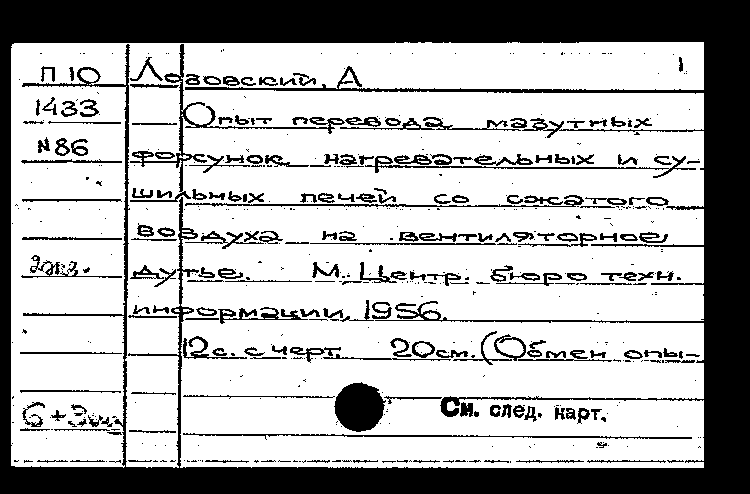 П 10 Лозовский, А 1
1433 Опыт перевода мазутных
№86 форсунок нагревательных и су-
шильных печей со сжатого
воздуха на вентиляторное
2экз. дутье. М. Центр. бюро техн.
информации, 1956.
12с. с черт. 20см. (Обмен опы-
См. след. карт.